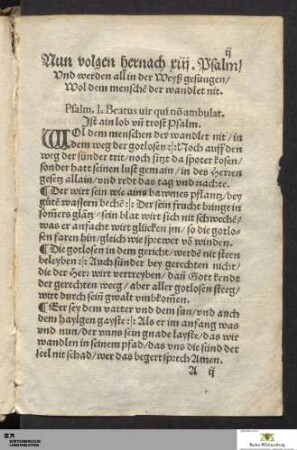 ij
Nun volgen hernach xiij. Psalm/
Vnd werden all in der Weyß gesungen/
Wol dem menschē der wandlet nit.
Psalm. I. Beatus uir qui nō ambulat.
Ist ain lob vñ trost Psalm.
WOl dem menschen der wandlet nit / in
dem weg der gotlosen :|: Noch auff den
weg der sünder trit / noch sitzt da spoter kosen /
sonder hatt seinen lust gemain / in des Herren
gesetz allain / vnd redt das tag vnd nachte.
¶ Der wirt sein wie ains bawmes pflantz / bey
gůtē wassern bechē :|: Der sein frucht bringt in
som̄ers glātz / sein blat wirt sich nit schwechē /
was er anfacht wirt glücken jm / so die gotlo-
sen faren hin / gleich wie sprewer vō winden.
¶ Die gotlosen in dem gericht / werdē nit steen
beleyben :|: Auch sünder bey gerechten nicht /
die der Herr wirt vertreyben / dañ Gott kendt
der gerechten weeg / aber aller gotlosen steeg /
wirt durch sein gwalt vmbkom̄en.
¶ Eer sey dem vatter vnd dem sün / vnd auch
dem haylgen gayste :|: Als er im anfang was
vnd nun / der vnns sein gnade layste / das wir
wandlen in seinem pfad / das vns die sünd der
seel nit schad / wer das begert sprech Amen.
A ij
WÜRTTEMBERGISCHE
LANDESBIBLIOTHEK
Baden-Württemberg